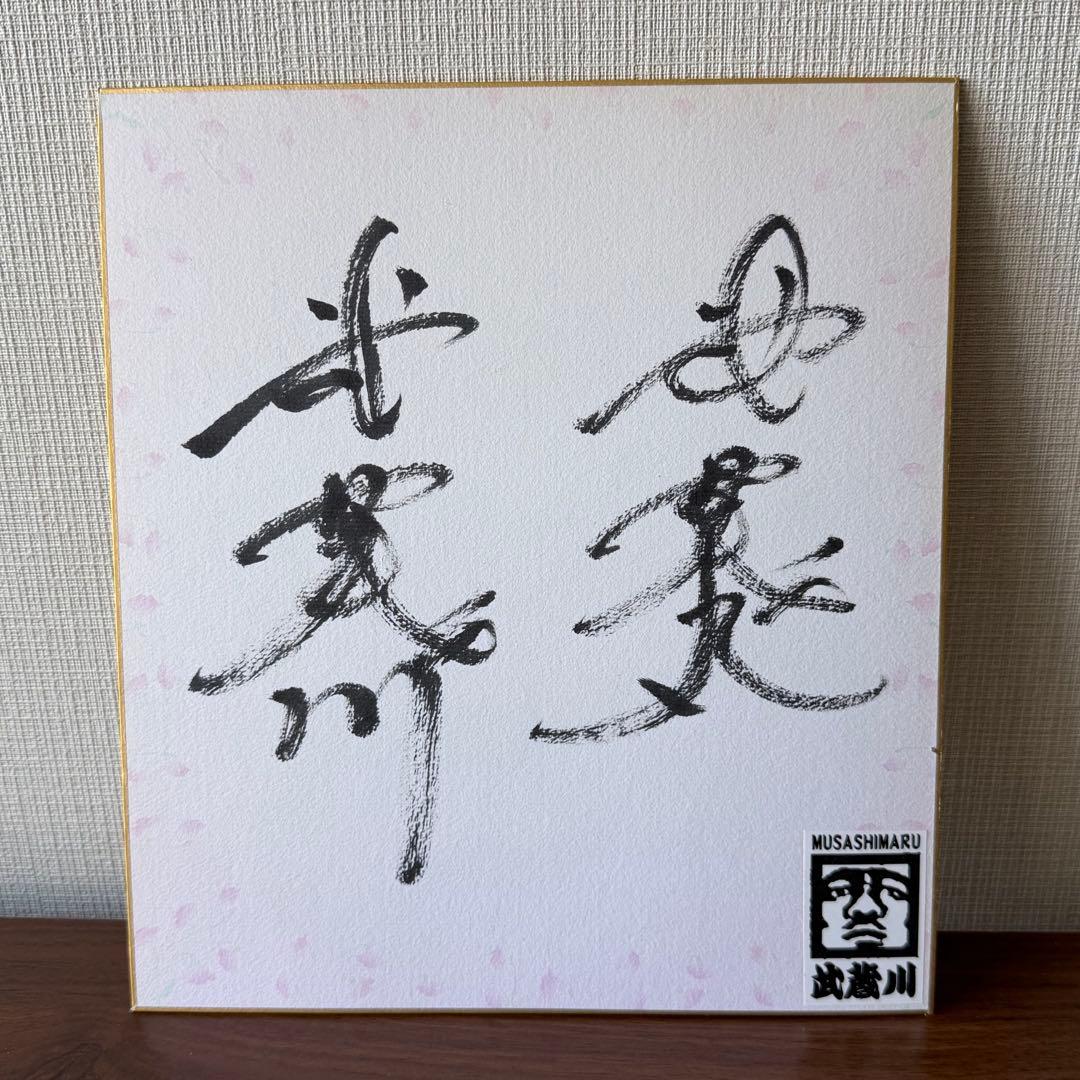 武蔵丸
武蔵川
MUSASHIMARU
武蔵川